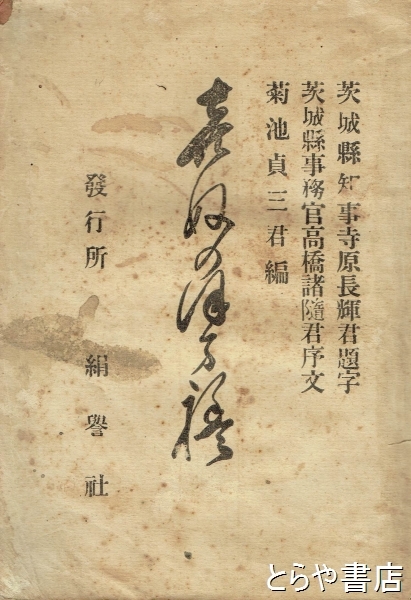 茨城縣知事寺原長輝君題字
茨城縣事務官高橋諸隨君序文
菊池貞三君編
喜奴の保万禮
發行所 絹譽社
とらや書店